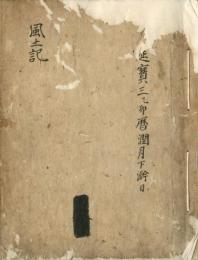 延寶三乙卯暦潤月下澣日
風土記